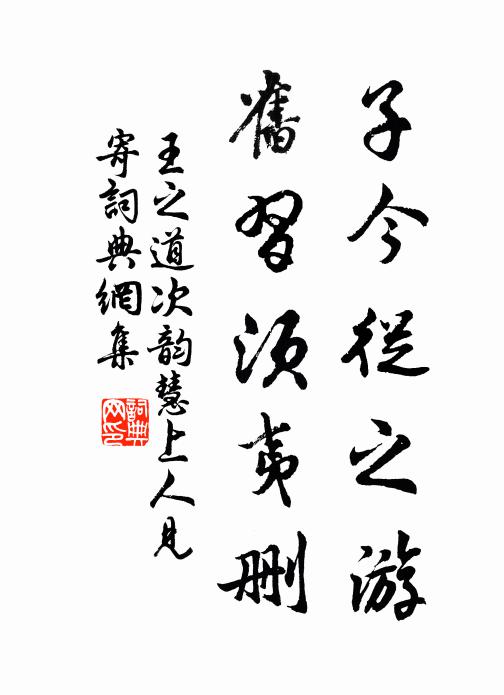 子今從之游
舊習須夷刪
王之道次韵慧上人見
寄詞典網集
詞典
网印